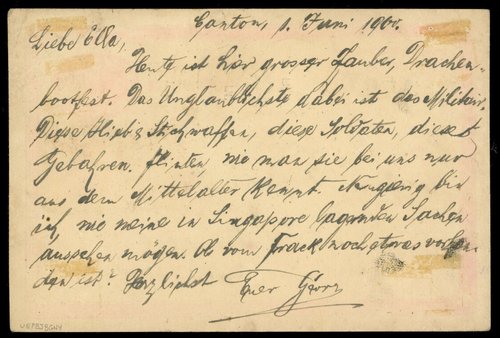 Canton, 1. Juni 1900.
Liebe Ella,
Heute ist hier grosser Zauber, Drachen-
bootfest. Das Unglaublichste dabei ist das Militair,
Diese Hieb & Stichwaffen, diese Soldaten, dieses
Gebahren. Flinten, wie man sie bei uns nur
aus dem Mittelalter kennt. Neugierig bin
ich, wie meine in Singapore lagernden Sachen
aussehen mögen. Ob vom Frack noch etwas vorhan-
den ist? Herzlichst Euer Georg